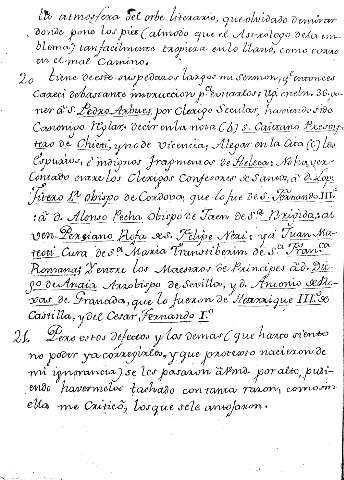 la atmosfera del orbe literario, que olvidado de mirar
donde pone los pies (al modo que el Astrologo de la em
blema) tan facilmente tropieza en lo llano, como corre
en el mal Camino.
20. tiene de este sus pedazos largos mi sermon, q.e entonces
Careci de bastante instruccion p.a evitarlos: Vg en el n. 36. po
ner a S. Pedro Arbues por Clerigo Secular, haviendo sido
Canonigo Reglar: decir en la nota (b) S. Caietano Presvi
tero de Chieti, y no de Vicencia; Alegar en la Cita (c) los
Espurios, è indignos fragmentos de Heleca: No haver
Contado entre los Clerigos Confesores de Santos, à d. Lope
Fitero 1.º obispo de Cordova, que lo fue de S. Fernando III:
à d. Alonso Pecha Obispo de Jaen de S.ta Brigida: al
Ven. Persiano Rosa de S. Felipe Neri: y à Juan Ma
teoti Cura de S.ta Maria Transtiberim de S.ta Fran.ca
Romana; Y entre los Maestros de Principes à d. Die
go de Anaia Arzobispo de Sevilla, y d. Antonio de Ro
xas de Granada, que lo fueron de Henrrique III.º de
Castilla, y del Cesar Fernando I.º
21. Pero estos defectos y los demas (que harto siento
no poder ya corregirlos, y que protesto nacieron de
mi ignorancia) se les pasaron à Vmd por alto, pudi-
endo havermelos tachado con tanta razon, como sin
ella me Criticò, los que se le antojaron.